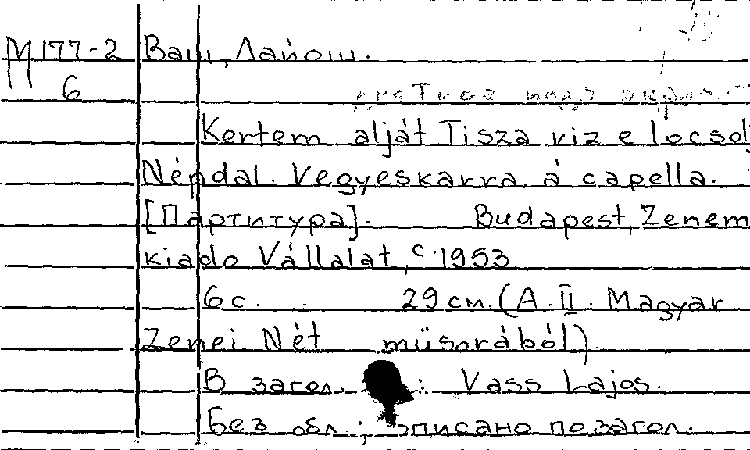 М177-2 Ваш, Лайош.
6
Kertem alját Tisza viz e locsol
Népdal. Vegyeskarra á capella.
[Партитура]. Budapest, Zenem
kiado Vállalat, c.1953
6 с. 29 см. (A. II. Magyar
Zenei Hét müsorából)
В загол. : Vass Lajos.
Без обл.; описано по загол.